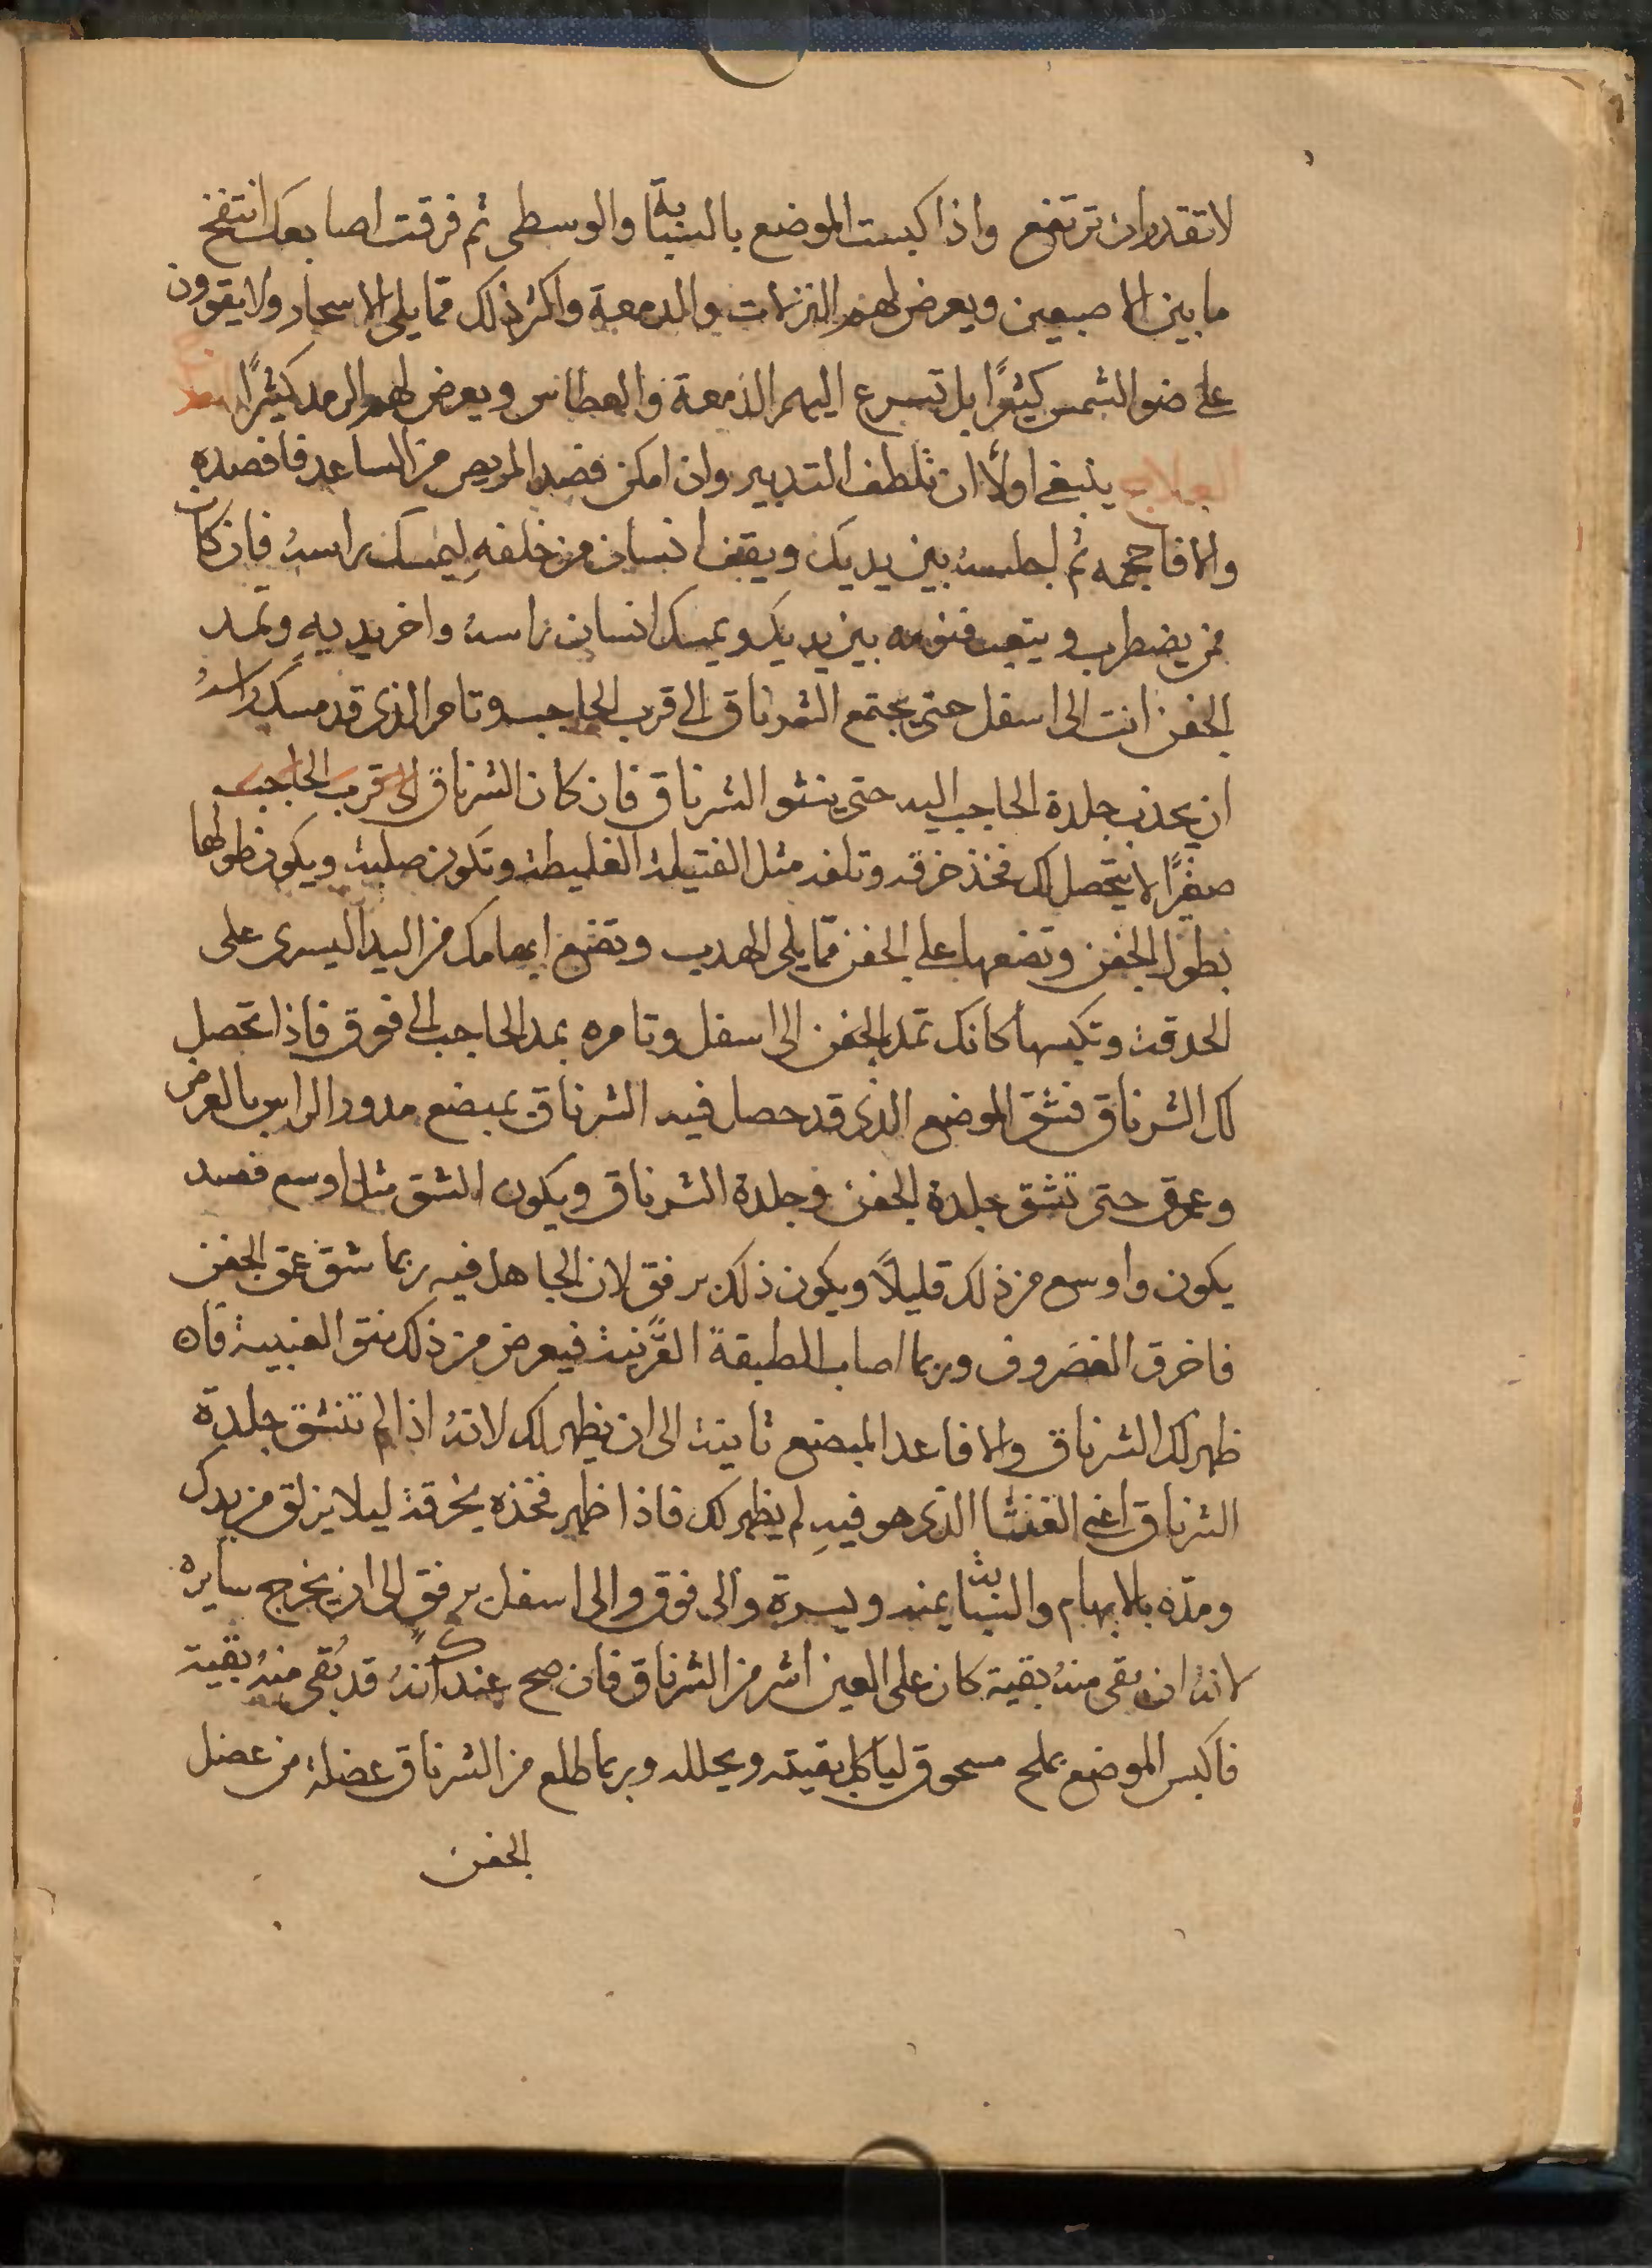 لا تقدر ان ترتفع واذا كبست الموضع بالسبابة والوسطى ثم فرقت اصابعك انتفخ
ما بين الاصبعين ويعرض لهم النزلات والدمعة واكثر ذلك مما يلى الاسحار ولا يقوون
على ضو الشمس كثيرًا بل تسرع اليهم الدمعة والعطاس ويعرض لهم الرمد كثيرًا
العلاج ينبغى اولًا ان تلطف التدبير وان امكن فصد المريض من الساعد فافصده
والا فاحجمه ثم اجلسهُ بين يديك ويقف انسان من خلفهِ ليمسك راسهُ فان كان
ممن يضطرب ويتعب فنومه بين يديك ويمسك انسان راسهُ واخر يديهِ وتمد
الجفن انت الى اسفل حتى يجتمع الشرناق الى قرب الحاجب وتامر الذى قد مسك راسهُ
ان يجذب جلدة الحاجب اليه حتى ينتو الشرناق فان كان الشرناق الى قرب الحاجب
صغيرًا لا يتحصل لك فخذ خرقه وتلفه مثل الفتيلة الغليظة وتكون صلبة ويكون طولها
بطول الجفن وتضعها على الجفن مما يلى الهدب وتضع ابهامك من اليد اليسرى على
الحدقة وتكبسها كانك تمد الجفن الى اسفل وتامره بمد الحاجب الى فوق فاذا تحصل
لك الشرناق فشق الموضع الذى قد حصل فيه الشرناق بمبضع مدور الراس بالعرض
وعمق حتى تشق جلدة الجفن وجلدة الشرناق ويكون الشق مثل اوسع فصد
يكون واوسع من ذلك قليلًا ويكون ذلك برفق لان الجاهل فيه ربما شق عمق الجفن
فاخرق الغضروف وربما اصاب الطبقة القرنية فيعرض من ذلك نتو العنبية فان
ظهر لك الشرناق والا فاعد المبضع ثانية الى ان يظهر لك لانهُ اذا لم تنشق جلدة
الشرناق اعنى الغشا الذى هو فيهِ لم يظهر لك فاذا ظهر فخذه بخرقة ليلا يزلق من يدك
ومده بالابهام والسبابة يمنه ويسرة والى فوق والى اسفل برفق الى ان يخرج سايره
لانهُ ان بقى منهُ بقية كان على العين اشر من الشرناق فان صح عندك انهُ قد بقى منهُ بقية
فاكبس الموضع بملح مسحوق لياكل بقيته ويحلله وربما طلع من الشرناق عضلة من عضل
الجفن